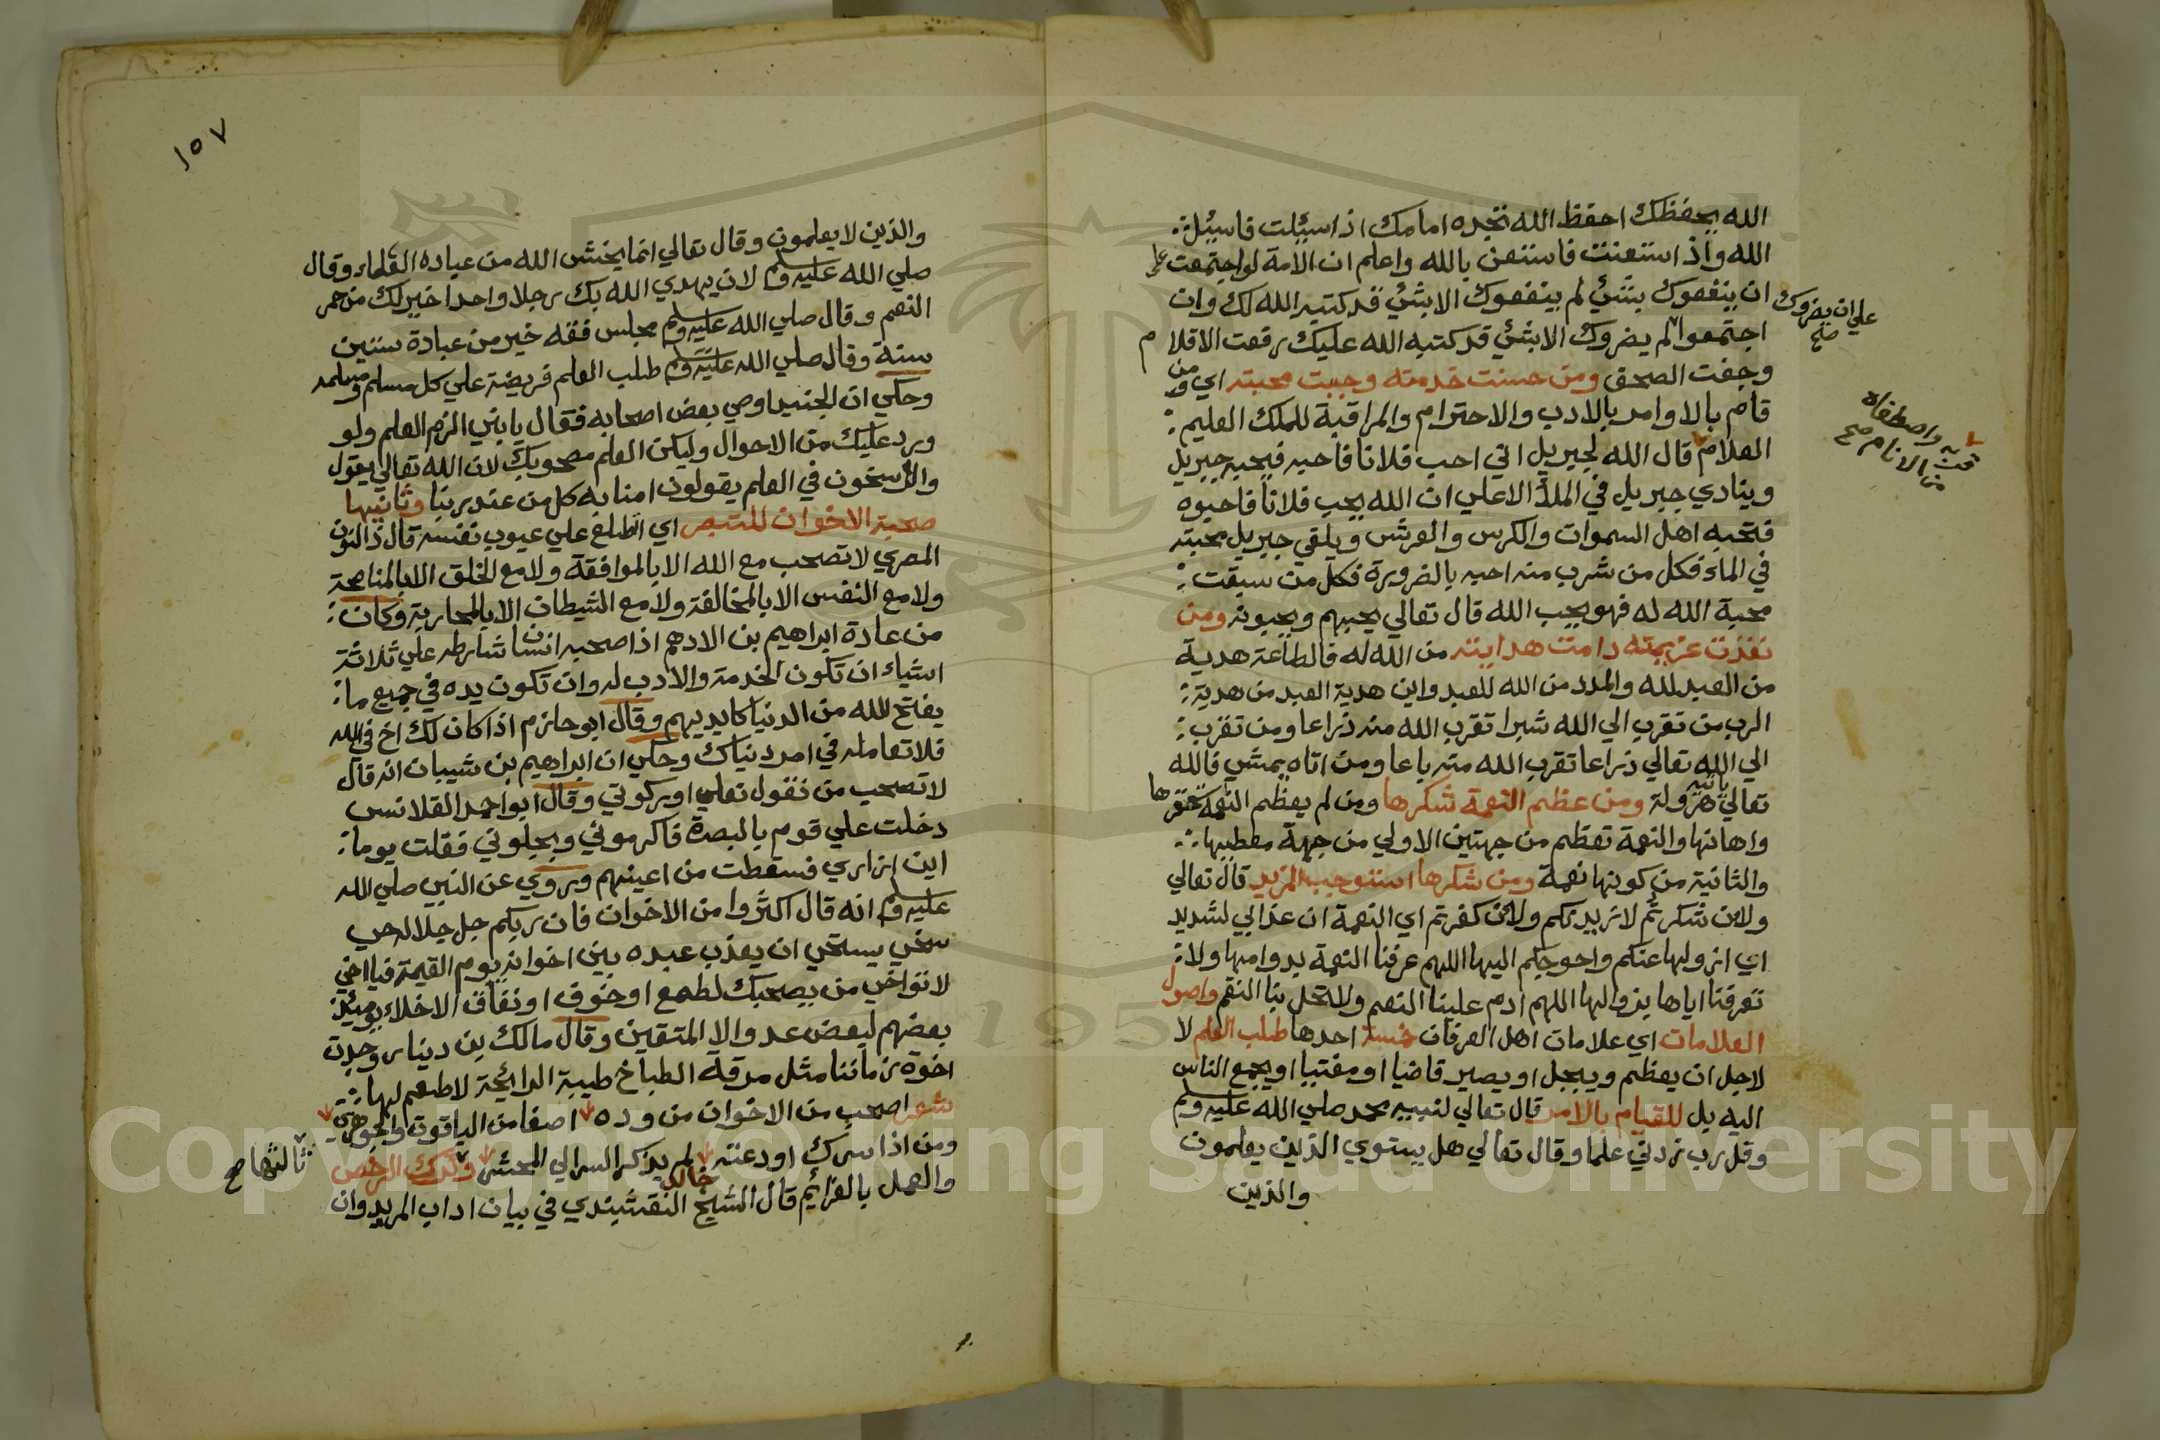 الله يحفظك احفظ الله تجده امامك اذا سئيلت فاسئيل
الله واذ استعنت فاستعن بالله واعلم ان الامة لو اجتمعت على
ان ينفعوك بشئ لم ينفعوك الا بشئ قد كتبه الله لك وان
اجتمعوا لم يضروك الا بشئ قد كتبه الله عليك رفعت الاقلام
على ان يضروك صح
وجفت الصحف ومن حسنت خدمته وجبت محبته اي ومن
قام بالاوامر بالادب والاحترام والمراقبة للملك العليم
العلام قال الله لجبريل اني احب فلانا فاحبه فيحبه جبريل
واصطفاه من الانام صح
وينادي جبريل في الملأ الاعلي ان الله يحب فلانا فاحبوه
فتحبه اهل السموات والكرس والعرش ويلقي جبريل محبته
في الماء فكل من شرب منه احبه بالضرورة فكل من سبقت
محبة الله له فهو يحب الله قال تعالي يحبهم ويحبونه ومن
نفذت عزيمته دامت هدايته من الله له فالطاعة هدية
من العبد لله والمدد من الله للعبد واين هدية العبد من هدية
الرب من تقرب الي الله شبرا تقرب الله منه ذراعا ومن تقرب
الي الله تعالي ذراعا تقرب الله منه باعا ومن اتاه يمشي فالله
تعالي يأتيه هرولة ومن عظم النعمة شكرها ومن لم يعظم النعمة حقرها
واهانها والنعمة تعظم من جهتين الاولي من جهة معطيها
والثانية من كونها نعمة ومن شكرها استوجب المزيد قال تعالي
ولان شكرتم لازيدنكم ولان كفرتم اي النعمة ان عذابي لشديد
اي ازولها عنكم واحوجكم اليها اللهم عرفنا النعمة بدوامها ولا
تعرفنا اياها بزوالها اللهم ادم علينا النعم ولا تحل بنا النقم واصول
العلامات اي علامات اهل العرفان خمسة احدها طلب العلم لا
لاجل ان يعظم ويبجل او يصير قاضيا او مفتيا او يجمع الناس
اليه بل للقيام بالامر قال تعالي لنبيه محمد صلي الله عليه وسلم
وقل رب زدني علما وقال تعالي هل يستوي الذين يعلمون
والذين
١٥٧
والذين لا يعلمون وقال تعالي انما يخشي الله من عباده العلماء وقال
صلي الله عليه وسلم لان يهدي الله بك رجلا واحدا خير لك من حمر
النعم وقال صلي الله عليه وسلم مجلس فقه خير من عبادة ستين
سنة وقال صلي الله عليه وسلم طلب العلم فريضة علي كل مسلم ومسلمه
وحكي ان الجنيد اوصي بعض اصحابه فقال يا بني الزم العلم ولو
ورد عليك من الاحوال وليكن العلم مصحوبك لان الله تعالي يقول
والراسخون في العلم يقولون امنا به كل من عند ربنا وثانيها
صحبة الاخوان للتبصر اي اطلع علي عيوب نفسه قال ذا النون
المصري لا تصحب مع الله الا بالموافقة ولا مع الخلق الا بالمناصحة
ولا مع النفس الا بالمخالفة ولا مع الشيطان الا بالمحاربة وكان
من عادة ابراهيم بن الادهم اذا صحبه انسانا شارطه علي ثلاثة
اشياء ان تكون الخدمة والادب له وان تكون يده في جميع ما
يفتح الله من الدنيا كايديهم وقال ابو حازم اذا كان لك اخ في الله
فلا تعامله في امر دنياك وحكي ان ابراهيم بن شيبان انه قال
لا تصحب من نقول نعلي او ركوتي وقال ابو احمد القلانس
دخلت علي قوم بالبصرة فاكرموني وبجلوني فقلت يوما
اين ازاري فسقطت من اعينهم ويروي عن النبي صلي الله
عليه وسلم انه قال اكثروا من الاخوان فان ربكم جل جلاله حي
سخي يستحي ان يعذب عبده بين اخوانه يوم القيمة فيا اخي
لا تواخي من يصحبك لطمع او خوف او نفاق الاخلاء يوميئذ
بعضهم لبعض عدو الا المتقين وقال مالك بن دينار وجدت
اخوة زماننا مثل مرقة الطباخ طيبة الرائحة لا طعم لها
شعر اصحب من الاخوان من وده اصفا من الياقوت والجوهري
ومن اذا سرك اودعته لم يذكر السر الي المحشر وترك الرخص
ثالثها صح
والعمل بالعزائم قال الشيخ خالد النقشبندي في بيان اداب المريد وان
Copyright © King Saud University
195